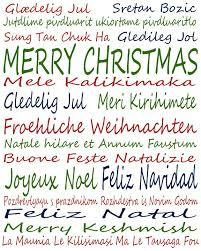 Glædelig Jul Sretan Bozic
Jutdlime pivdluarit ukiortame pivdluaritlo
Sung Tan Chuk Ha Gledileg Jol
MERRY CHRISTMAS
Mele Kalikimaka
Gledelig Jul Meri Kirihimete
Froehliche Weihnachten
Natale hilare et Annum Faustum
Buone Feste Natalizie
Joyeux Noel Feliz Navidad
Pozdrevlyayu s prazdnikom Rozhdestva is Novim Godom
Feliz Natal
Merry Keshmish
La Maunia Le Kilisimasi Ma Le Tausaga Fou